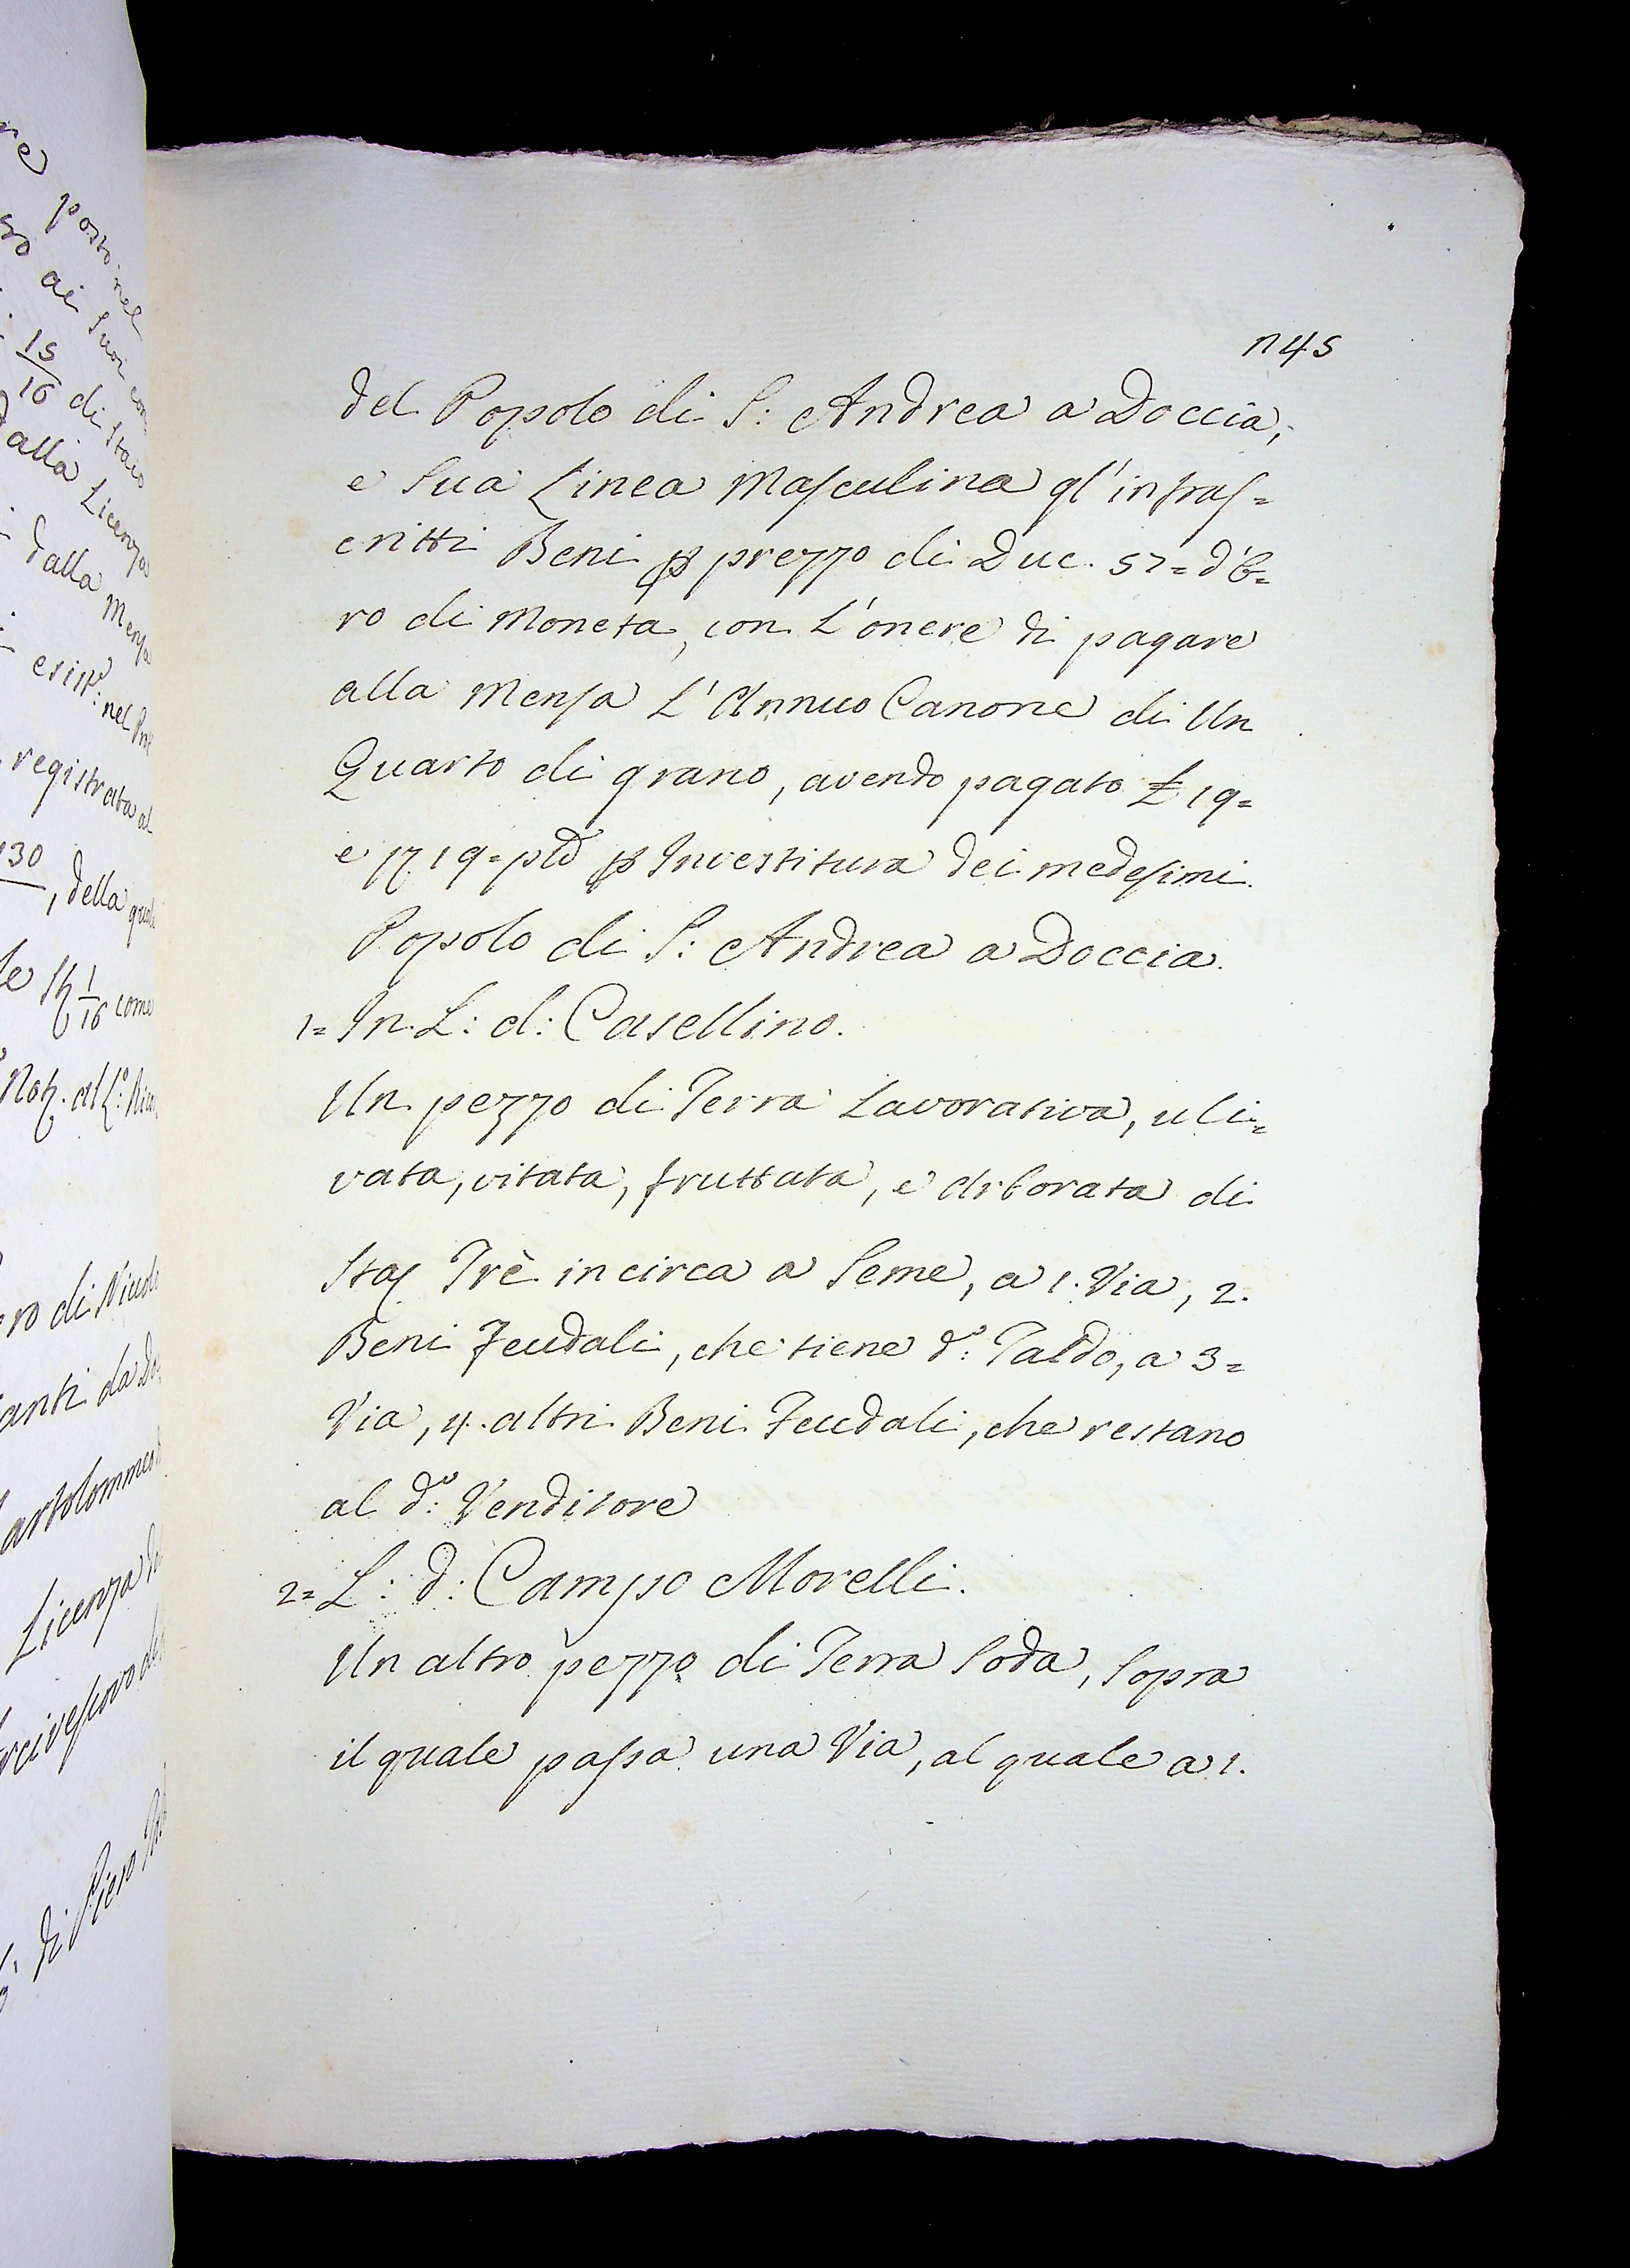 1145
del Popolo di S: Andrea a Doccia,
e Sua Linea Masculina gl'infras=
critti Beni prezzo di Duc. 57= d'6=
ro di Moneta, con L'onere di pagare
alla Mensa L'Annuo Canone di Un
Quarto di grano, avendo pagato £ 19=
e 19= Investitura dei medesimi.
Popolo di S: Andrea a Doccia.
1= In L: d: Casellino.
Un pezzo di Terra Lavorativa, uli=
vata, vitata, fruttata, e Arborata di
Sta Trè in circa a Seme, a 1. Via, 2.
Beni Feudali, che tiene d.º: Taldo, a 3=
Via, 4. altri Beni Feudali, che restano
al d.º: Venditore
2= L: d: Campo Morelli.
Un altro pezzo di Terra Soda, Sopra
il quale passa una Via, al quale a 1.
posto nel
ai Suoi
15
16 di Staio
alla Licenza
dalla Mensa
nel
registrata al
30
, della
1
16 come
di
da
Licenza
di Piero